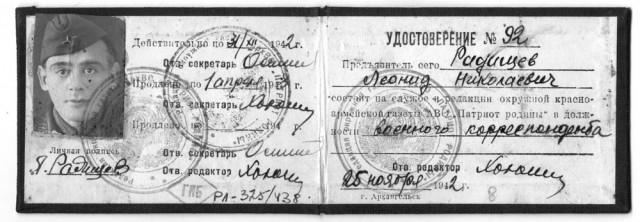 Действительно по 31/XII 1942 г.
Отв. секретарь
Продлено по 1 апреля 194 г.
Отв. секретарь
Продлено по 194 г.
Отв. секретарь
Личная подпись
Л. Радищев
Отв. редактор
ГПБ
РЛ-325/438.
УДОСТОВЕРЕНИЕ № 92
Предъявитель сего Радищев
Леонид Николаевич
состоит на службе в редакции окружной красно-
армейской газеты АВО „Патриот родины" в долж-
ности военного корреспондента
Отв. редактор
25 ноября 1942 г.
г. Архангельск
8